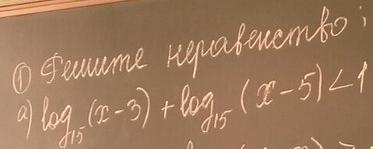 ① Решите неравенство:
а) log₁₅ (x-3) + log₁₅ (x-5) < 1